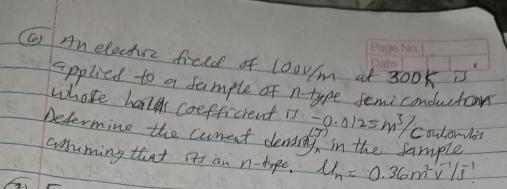 Page No.
Date
(6) An electric field of 100V/m at 300K is
applied to a sample of n-type semiconductors
whose halls coefficient is -0.0125m³/Coulombs
Determine the current density (J) in the sample
assuming that its an n-type. Un = 0.36m² v⁻¹ s⁻¹